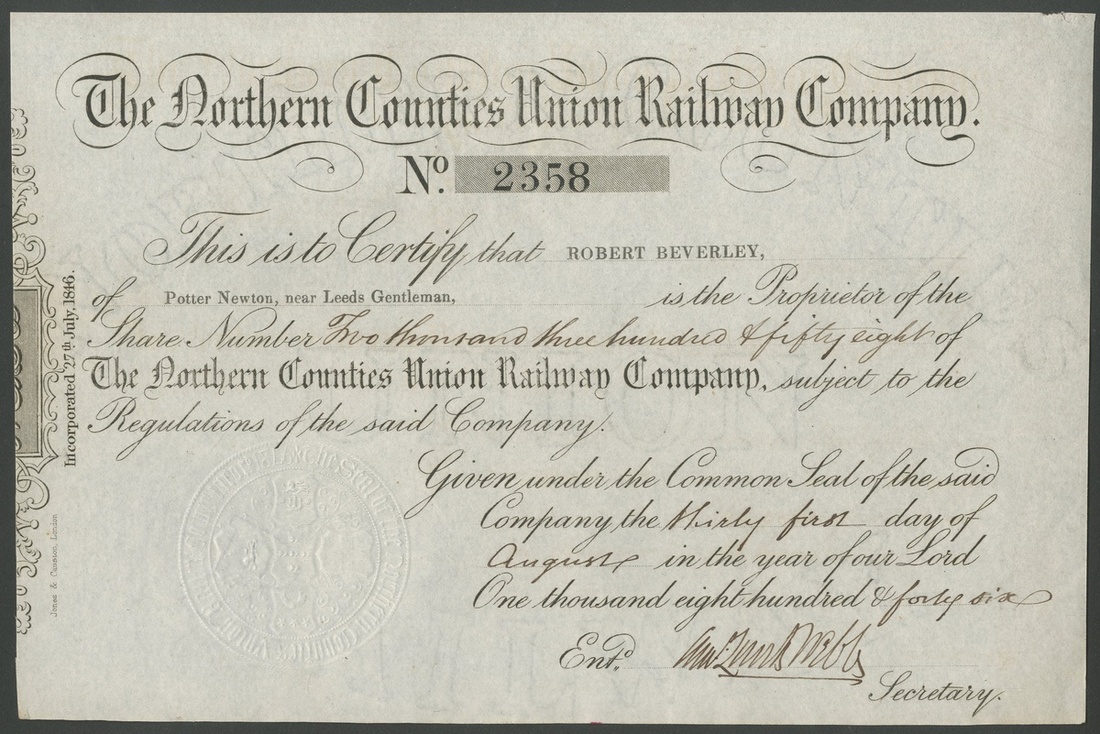 The Northern Counties Union Railway Company.
No. 2358
This is to Certify that ROBERT BEVERLEY,
of Potter Newton, near Leeds Gentleman, is the Proprietor of the
Share Number Two thousand three hundred & fifty eight of
The Northern Counties Union Railway Company, subject to the
Regulations of the said Company.
Given under the Common Seal of the said
Company the thirty first day of
August in the year of our Lord
One thousand eight hundred & forty six
Entd. Webb
Secretary.
Incorporated 27th July, 1846.
Jones & Causton, London